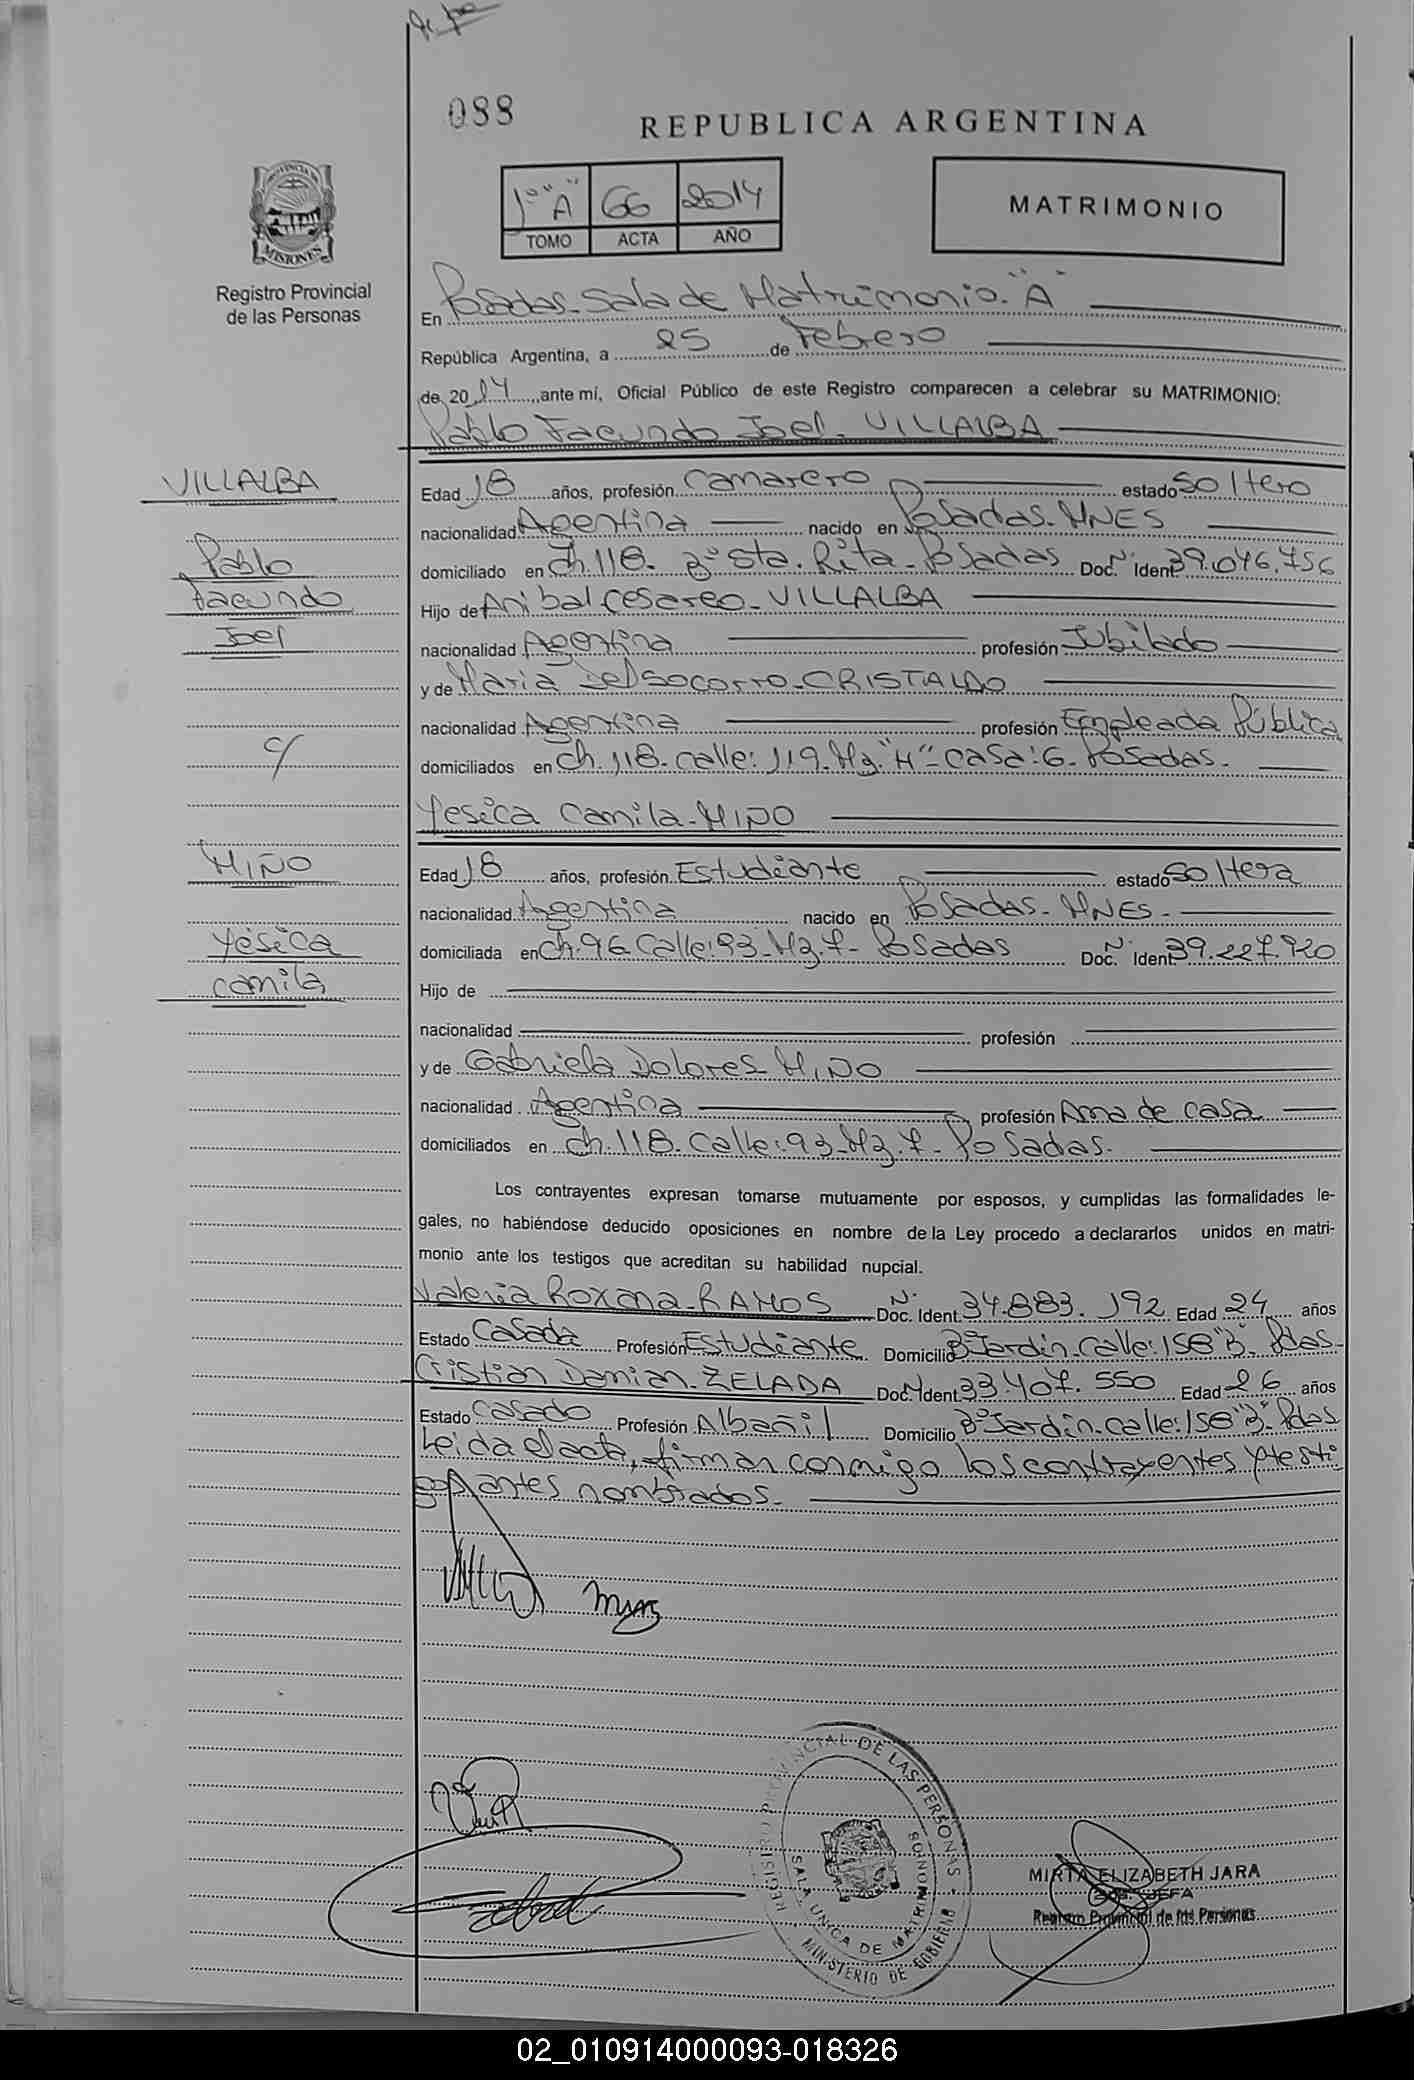 088
REPUBLICA ARGENTINA
PROVINCIA DE
MISIONES
Registro Provincial
de las Personas
1º "A" 66 2014
TOMO ACTA AÑO
MATRIMONIO
En Posadas-Sala de Matrimonio-"A"
República Argentina, a 25 de Febrero
de 2014 ante mí, Oficial Público de este Registro comparecen a celebrar su MATRIMONIO:
Pablo Facundo Joel-VILLALBA
VILLALBA
Pablo
Facundo
Joel
c/
MIÑO
Yésica
Camila
Edad 18 años, profesión Camarero estado Soltero
nacionalidad Agentina nacido en Posadas-MNES
domiciliado en Ch.118-Bº Sta. Rita-Posadas Doc. Nº Ident. 39.046.756
Hijo de Anibal Cesareo-VILLALBA
nacionalidad Agentina profesión Jubilado
y de Maria Del Socorro-CRISTALDO
nacionalidad Agentina profesión Empleada Pública
domiciliados en Ch.118-calle:119-Mz."H"-casa:6-Posadas-
Yesica Camila-MIÑO
Edad 18 años, profesión Estudiante estado Soltera
nacionalidad Argentina nacido en Posadas-MNES-
domiciliada en Ch.96 Calle:93-Mz.7-Posadas Doc. Nº Ident. 39.227.920
Hijo de
nacionalidad profesión
y de Gabriela Dolores MIÑO
nacionalidad Agentina profesión Ama de casa
domiciliados en Ch.118-Calle:93-Mz.7-Posadas-
Los contrayentes expresan tomarse mutuamente por esposos, y cumplidas las formalidades le-
gales, no habiéndose deducido oposiciones en nombre de la Ley procedo a declararlos unidos en matri-
monio ante los testigos que acreditan su habilidad nupcial.
Valeria Roxana-RAMOS Doc. Nº Ident. 34.883.192 Edad 24 años
Estado Casada Profesión Estudiante Domicilio Bº Jardin-Calle:158"B"-Pdas-
Cristian Damian-ZELADA Doc. Nº Ident. 33.407.550 Edad 26 años
Estado Casado Profesión Albañil Domicilio Bº Jardin-Calle:158"B"-Pdas
Leida el acta, firman conmigo los contrayentes y testi-
gos antes nombrados.-
REGISTRO PROVINCIAL DE LAS PERSONAS
SALA UNICA DE MATRIMONIOS
MINISTERIO DE GOBIERNO
MIRTA ELIZABETH JARA
JEFA
Registro Provincial de las Personas
02_010914000093-018326